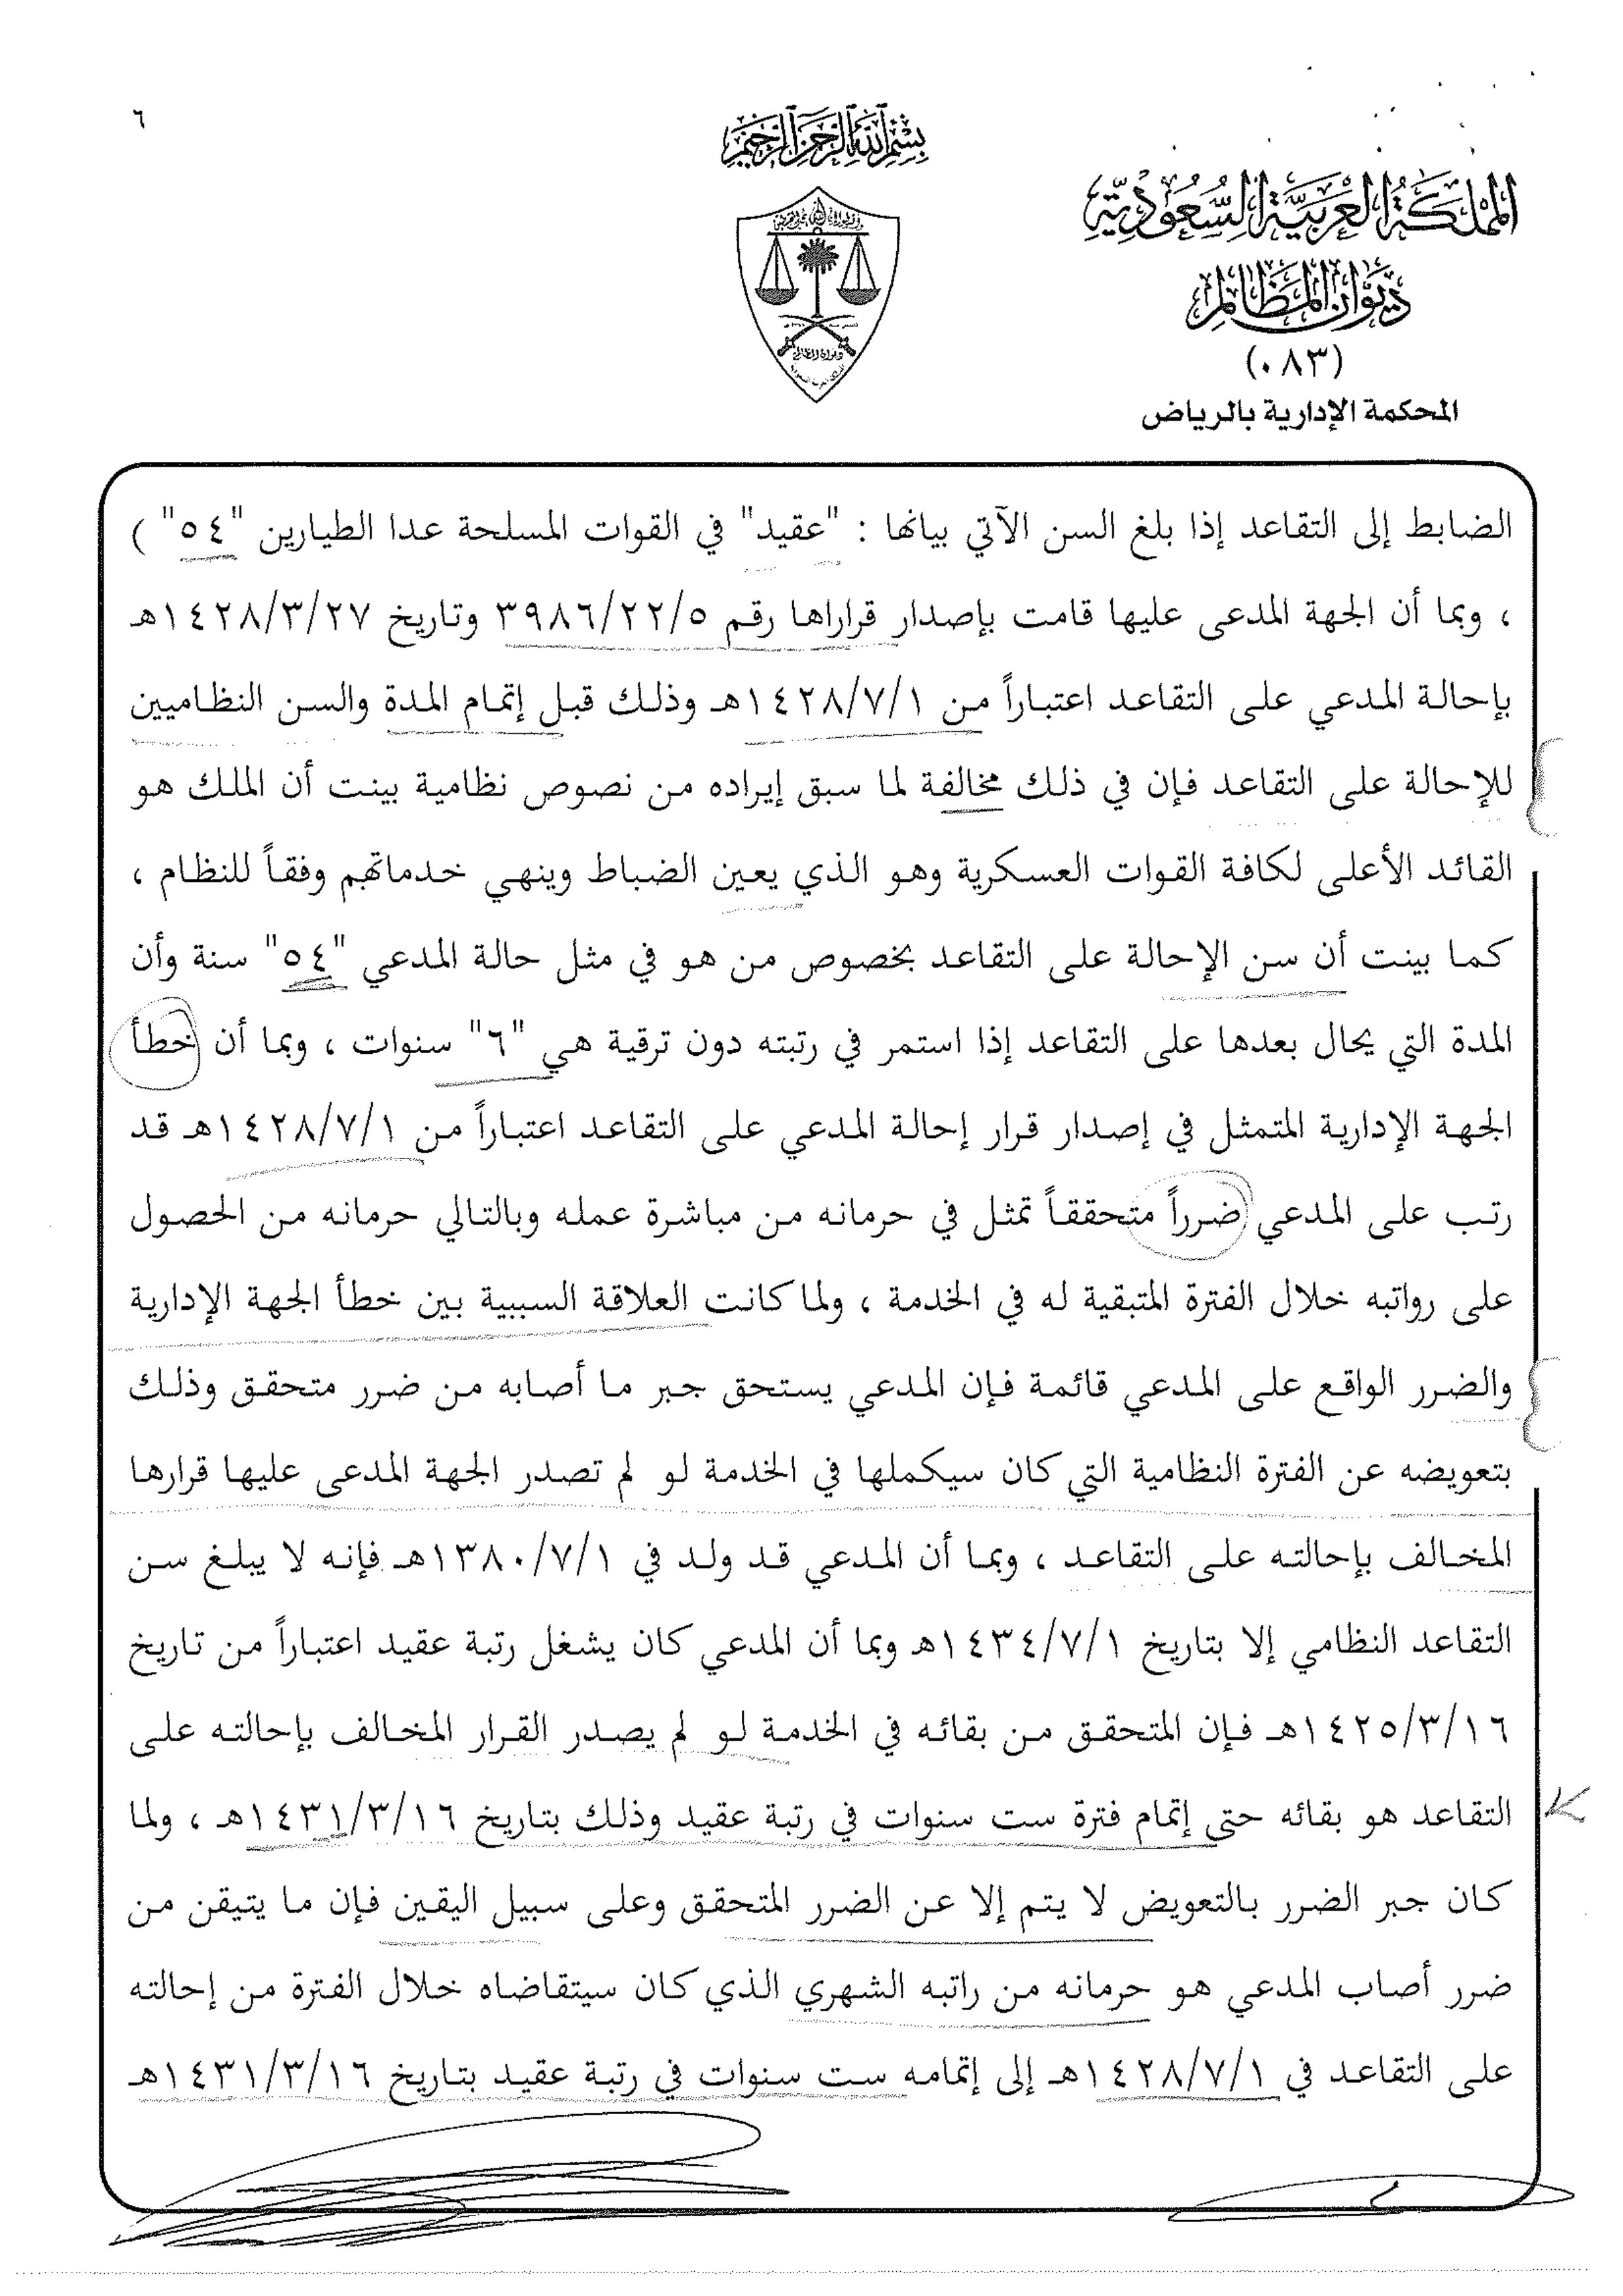 ٦
بسم الله الرحمن الرحيم
المملكة العربية السعودية
ديوان المظالم
(٠٨٣)
المحكمة الإدارية بالرياض
ديوان المظالم
الضابط إلى التقاعد إذا بلغ السن الآتي بيانها : "عقيد" في القوات المسلحة عدا الطيارين "٥٤" )
، وبما أن الجهة المدعى عليها قامت بإصدار قراراها رقم ٣٩٨٦/٢٢/٥ وتاريخ ١٤٢٨/٣/٢٧هـ
بإحالة المدعي على التقاعد اعتباراً من ١٤٢٨/٧/١هـ وذلك قبل إتمام المدة والسن النظاميين
للإحالة على التقاعد فإن في ذلك مخالفة لما سبق إيراده من نصوص نظامية بينت أن الملك هو
القائد الأعلى لكافة القوات العسكرية وهو الذي يعين الضباط وينهي خدماتهم وفقاً للنظام ،
كما بينت أن سن الإحالة على التقاعد بخصوص من هو في مثل حالة المدعي "٥٤" سنة وأن
المدة التي يحال بعدها على التقاعد إذا استمر في رتبته دون ترقية هي "٦" سنوات ، وبما أن خطأ
الجهة الإدارية المتمثل في إصدار قرار إحالة المدعي على التقاعد اعتباراً من ١٤٢٨/٧/١هـ قد
رتب على المدعي ضرراً متحققاً تمثل في حرمانه من مباشرة عمله وبالتالي حرمانه من الحصول
على رواتبه خلال الفترة المتبقية له في الخدمة ، ولما كانت العلاقة السببية بين خطأ الجهة الإدارية
والضرر الواقع على المدعي قائمة فإن المدعي يستحق جبر ما أصابه من ضرر متحقق وذلك
بتعويضه عن الفترة النظامية التي كان سيكملها في الخدمة لو لم تصدر الجهة المدعى عليها قرارها
المخالف بإحالته على التقاعد ، وبما أن المدعي قد ولد في ١٣٨٠/٧/١هـ فإنه لا يبلغ سن
التقاعد النظامي إلا بتاريخ ١٤٣٤/٧/١هـ وبما أن المدعي كان يشغل رتبة عقيد اعتباراً من تاريخ
١٤٢٥/٣/١٦هـ فإن المتحقق من بقائه في الخدمة لو لم يصدر القرار المخالف بإحالته على
التقاعد هو بقائه حتى إتمام فترة ست سنوات في رتبة عقيد وذلك بتاريخ ١٤٣١/٣/١٦هـ ، ولما
كان جبر الضرر بالتعويض لا يتم إلا عن الضرر المتحقق وعلى سبيل اليقين فإن ما يتيقن من
ضرر أصاب المدعي هو حرمانه من راتبه الشهري الذي كان سيتقاضاه خلال الفترة من إحالته
على التقاعد في ١٤٢٨/٧/١هـ إلى إتمامه ست سنوات في رتبة عقيد بتاريخ ١٤٣١/٣/١٦هـ